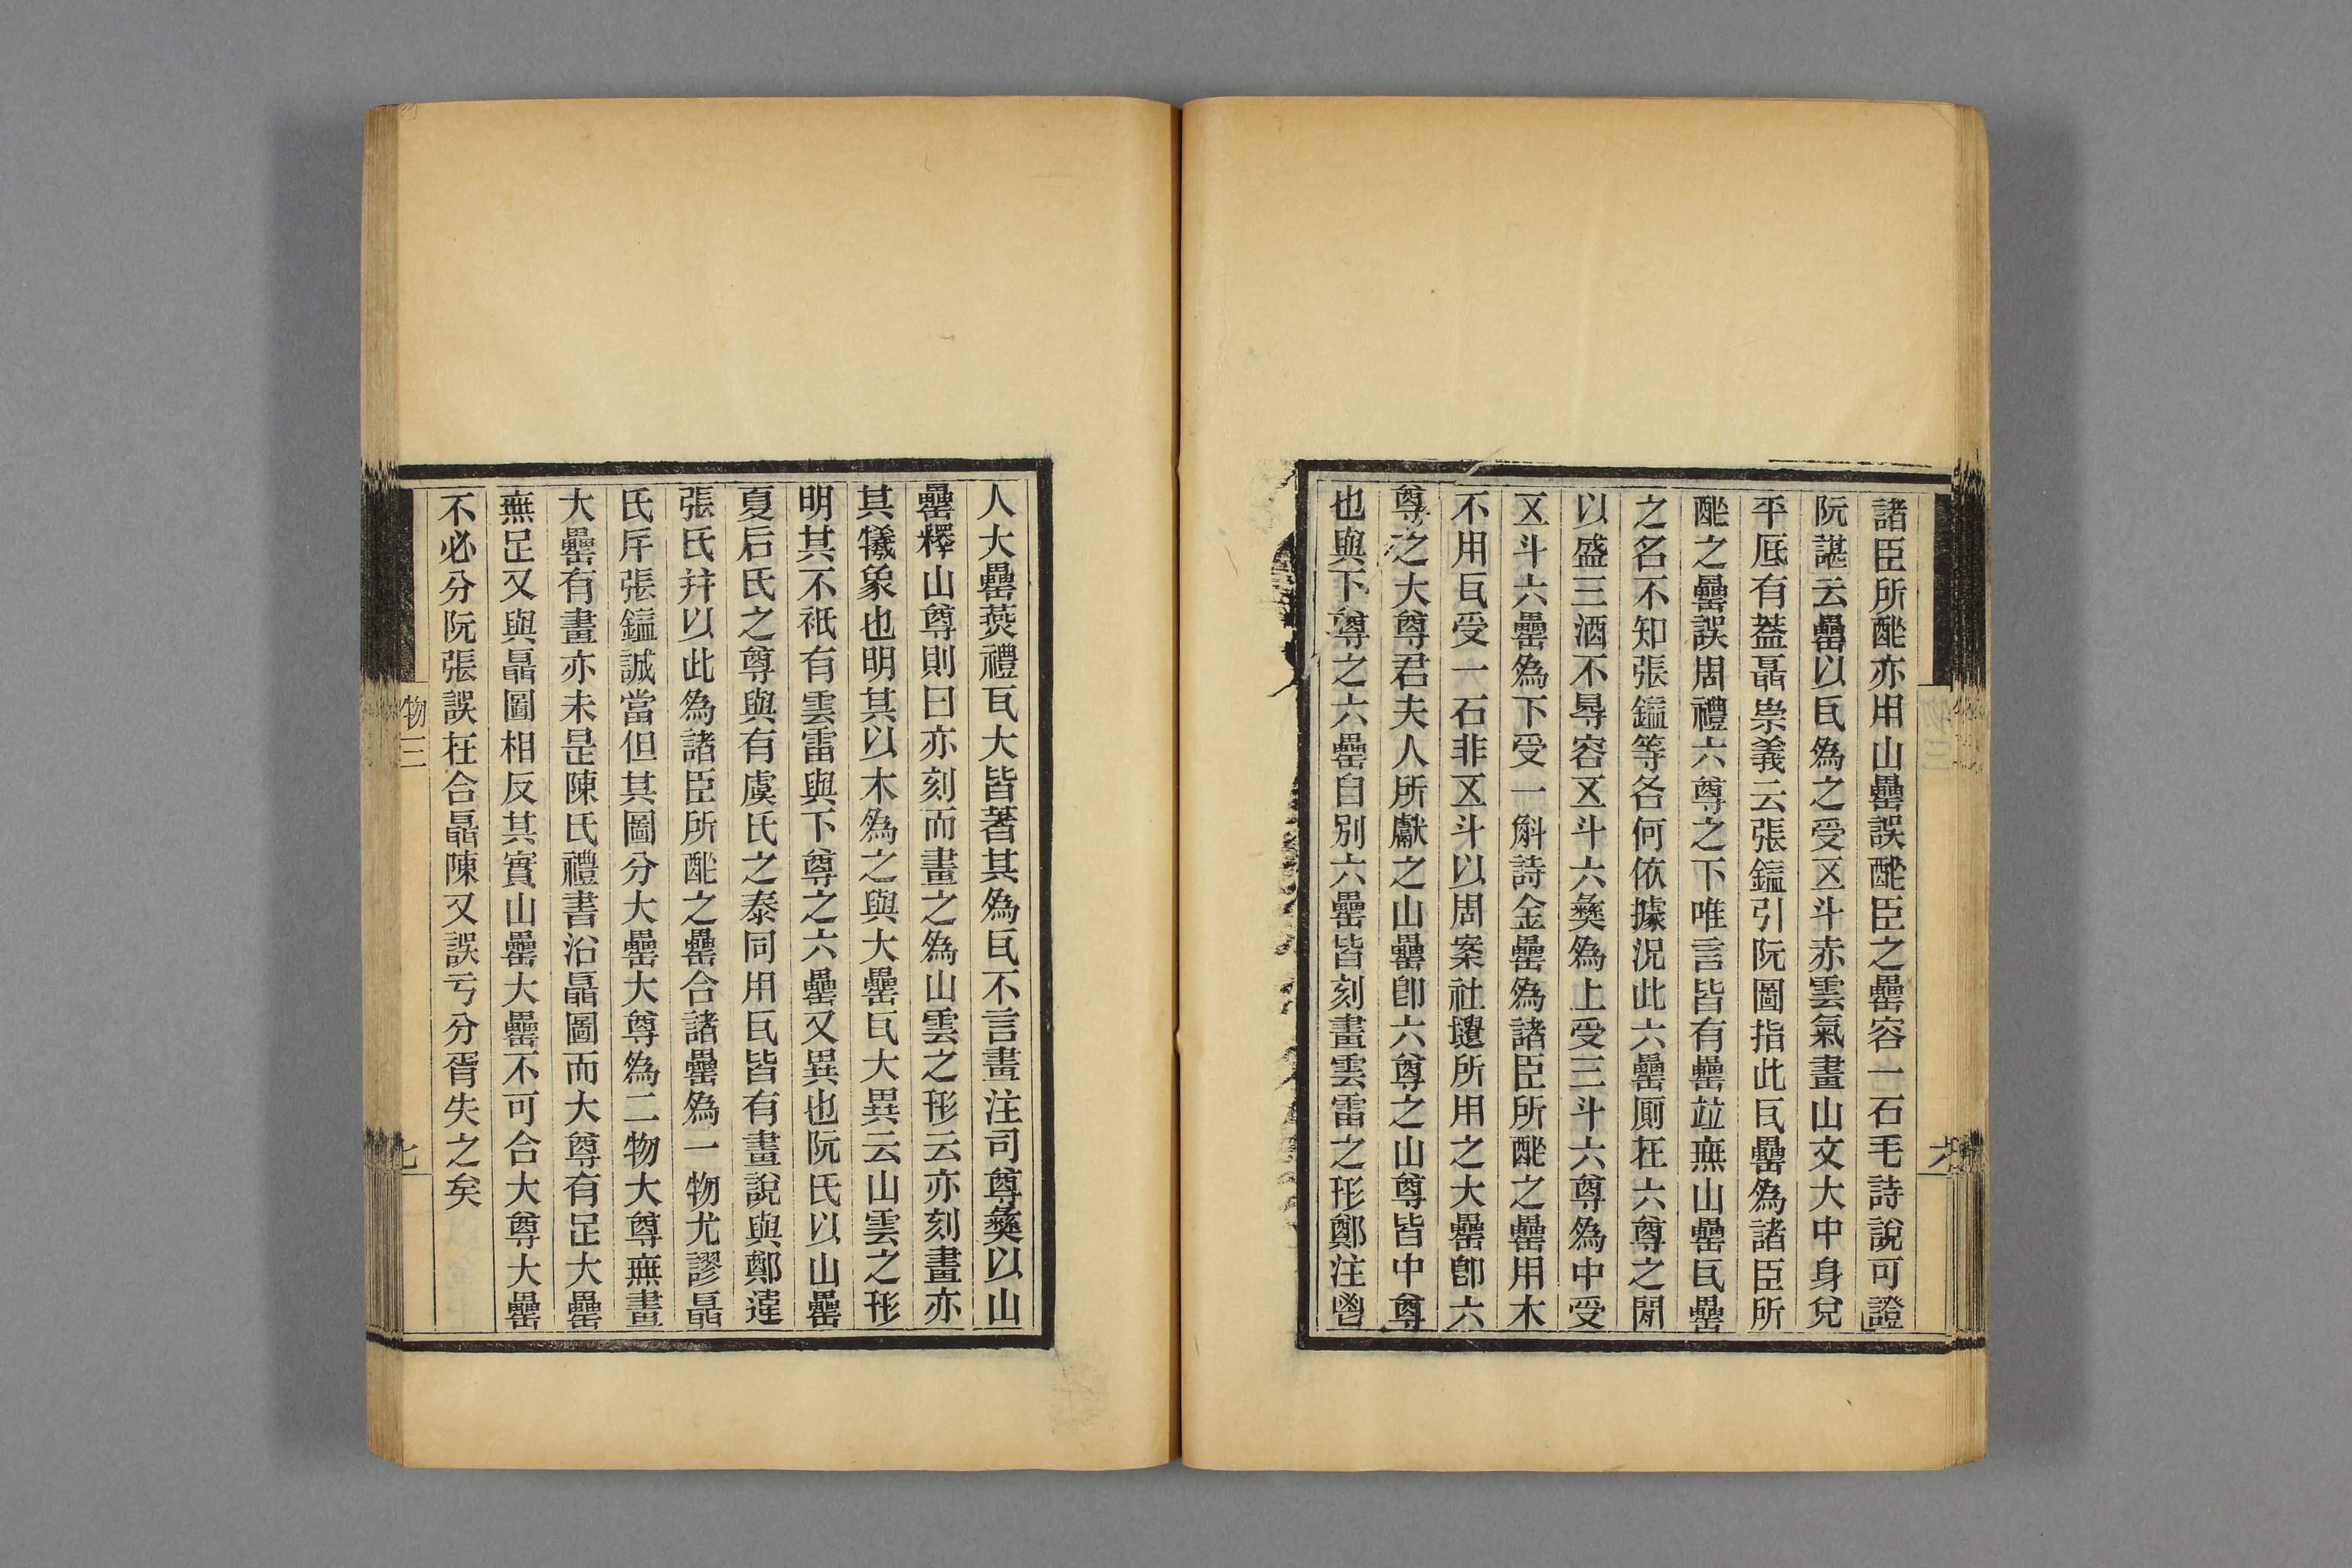 諸臣所酢亦用山罍誤酢臣之罍容一石毛詩說可證
阮諶云罍以瓦為之受五斗赤雲氣畫山文大中身兌
平底有葢聶崇義云張鎰引阮圖指此瓦罍為諸臣所
酢之罍誤周禮六尊之下唯言皆有罍竝無山罍瓦罍
之名不知張鎰等各何依據況此六罍厠在六尊之閒
以盛三酒不㝵容㐅斗六彝為上受三斗六尊為中受
㐅斗六罍為下受一斛詩金罍為諸臣所酢之罍用木
不用瓦受一石非㐅斗以周案社壝所用之大罍卽六
尊之大尊君夫人所獻之山罍卽六尊之山尊皆中尊
也與下尊之六罍自別六罍皆刻畫雲雷之形鄭注鬯
人大罍燕禮瓦大皆著其為瓦不言畫注司尊彝以山
罍釋山尊則曰亦刻而畫之為山雲之形云亦刻畫亦
其犧象也明其以木為之與大罍瓦大異云山雲之形
明其不衹有雲雷與下尊之六罍又異也阮氏以山罍
夏后氏之尊與有虞氏之泰同用瓦皆有畫說與鄭違
張氏幷以此為諸臣所酢之罍合諸罍為一物尤謬聶
氏斥張鎰誠當但其圖分大罍大尊為二物大尊無畫
大罍有畫亦未是陳氏禮書沿聶圖而大尊有足大罍
無足又與聶圖相反其實山罍大罍不可合大尊大罍
不必分阮張誤在合聶陳又誤亏分胥失之矣
物三
七
六